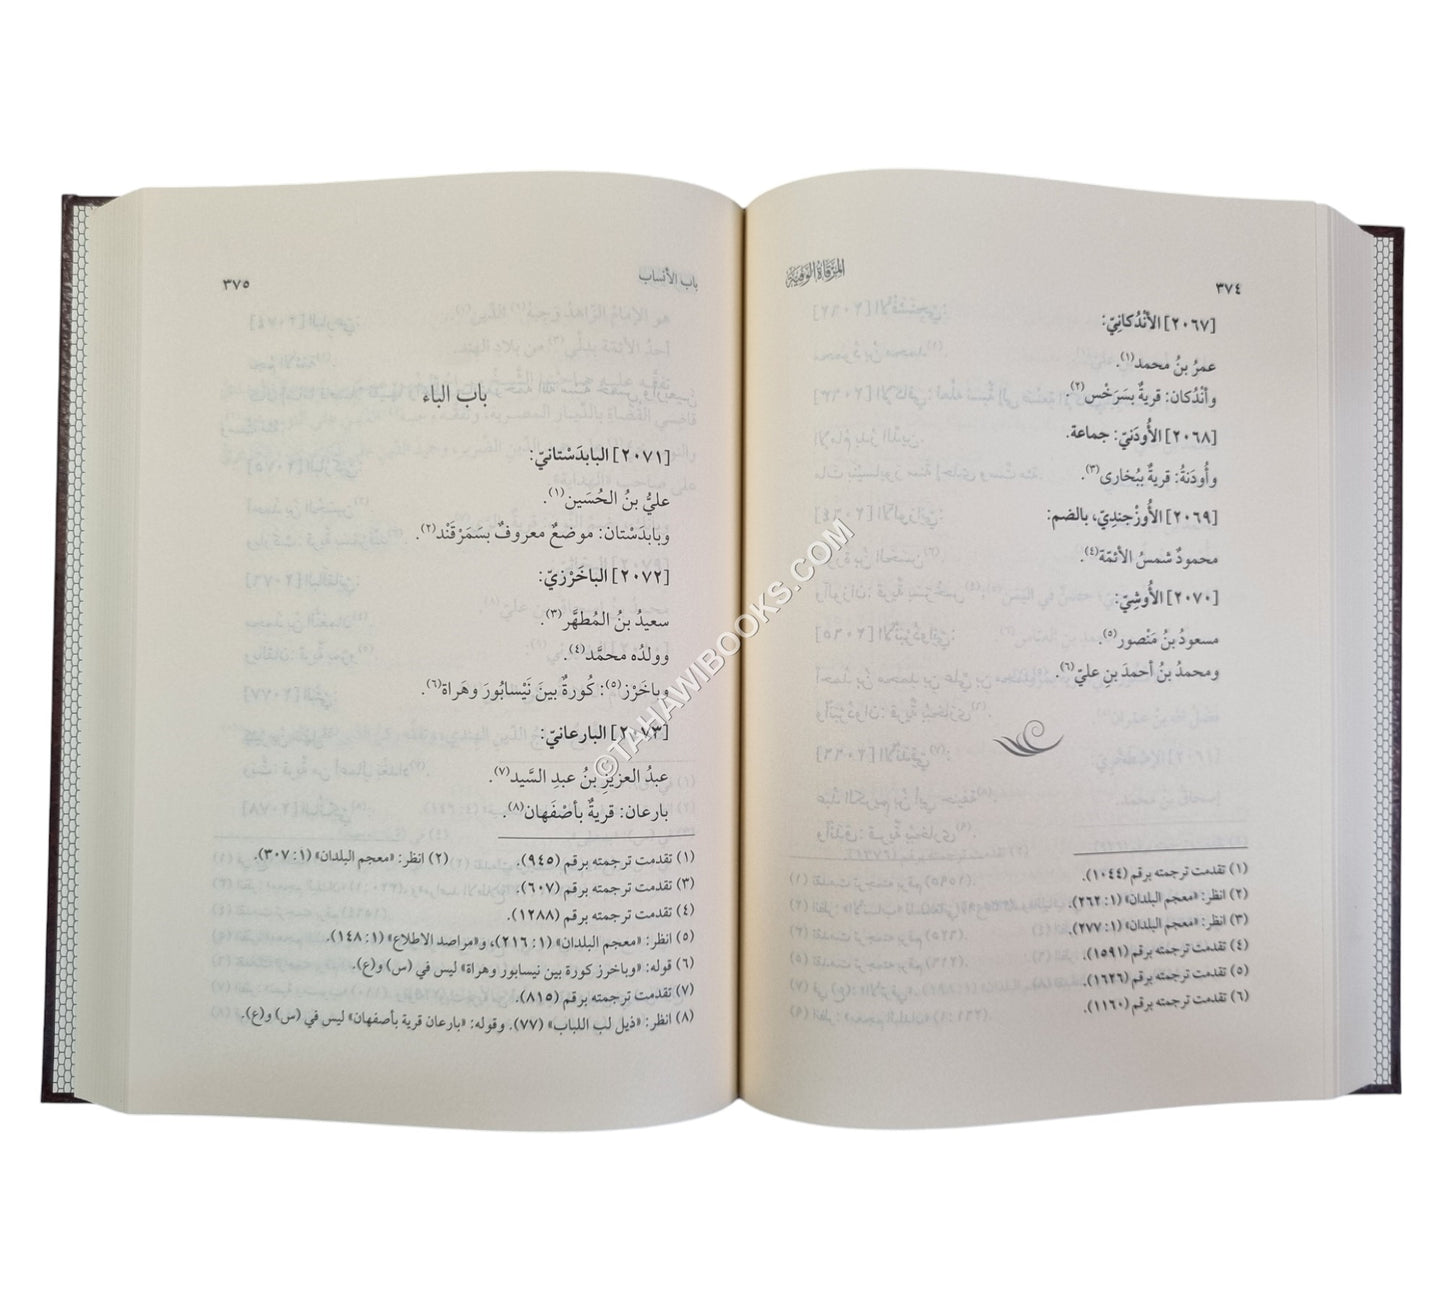 ٣٧٤
المرقاة الوفية
[٢٠٦٧] الأَنْدُكانيّ:
عمرُ بنُ محمد(١).
وأَنْدُكان: قريةٌ بسَرَخْس(٢).
[٢٠٦٨] الأُودَنيّ: جماعة.
وأُودَنَةُ: قريةٌ ببُخارى(٣).
[٢٠٦٩] الأُوزْجَنديّ، بالضم:
محمودٌ شمسُ الأئمّة(٤).
[٢٠٧٠] الأُوشِيّ:
مسعودُ بنُ مَنْصور(٥).
ومحمدُ بنُ أحمدَ بنِ عليّ(٦).
(١) تقدمت ترجمته برقم (١٠٤٤).
(٢) انظر: «معجم البلدان» (١: ٢٦٢).
(٣) انظر: «معجم البلدان» (١: ٢٧٧).
(٤) تقدمت ترجمته برقم (١٥٩١).
(٥) تقدمت ترجمته برقم (١٦٢٦).
(٦) تقدمت ترجمته برقم (١١٦٠).
باب الأنساب
٣٧٥
باب الباء
[٢٠٧١] البابدَسْتانيّ:
عليُّ بنُ الحُسَين(١).
وبابدَسْتان: موضعٌ معروفٌ بسَمَرْقَنْد(٢).
[٢٠٧٢] الباخَرْزيّ:
سعيدُ بنُ المُطهَّر(٣).
وولدُه محمَّد(٤).
وباخَرْز(٥): كُورةٌ بينَ نَيْسابُورَ وهَراة(٦).
[٢٠٧٣] البارعانيّ:
عبدُ العزيزِ بنُ عبدِ السَّيد(٧).
بارعان: قريةٌ بأصْفَهان(٨).
(١) تقدمت ترجمته برقم (٩٤٥). (٢) انظر: «معجم البلدان» (١: ٣٠٧).
(٣) تقدمت ترجمته برقم (٦٠٧).
(٤) تقدمت ترجمته برقم (١٢٨٨).
(٥) انظر: «معجم البلدان» (١: ٢١٦)، و«مراصد الاطلاع» (١: ١٤٨).
(٦) قوله: «وباخرز كورة بين نيسابور وهراة» ليس في (س) و(ع).
(٧) تقدمت ترجمته برقم (٨١٥).
(٨) انظر: «ذيل لب اللباب» (٧٧). وقوله: «بارعان قرية بأصفهان» ليس في (س) و(ع).
©TAHAWIBOOKS.COM